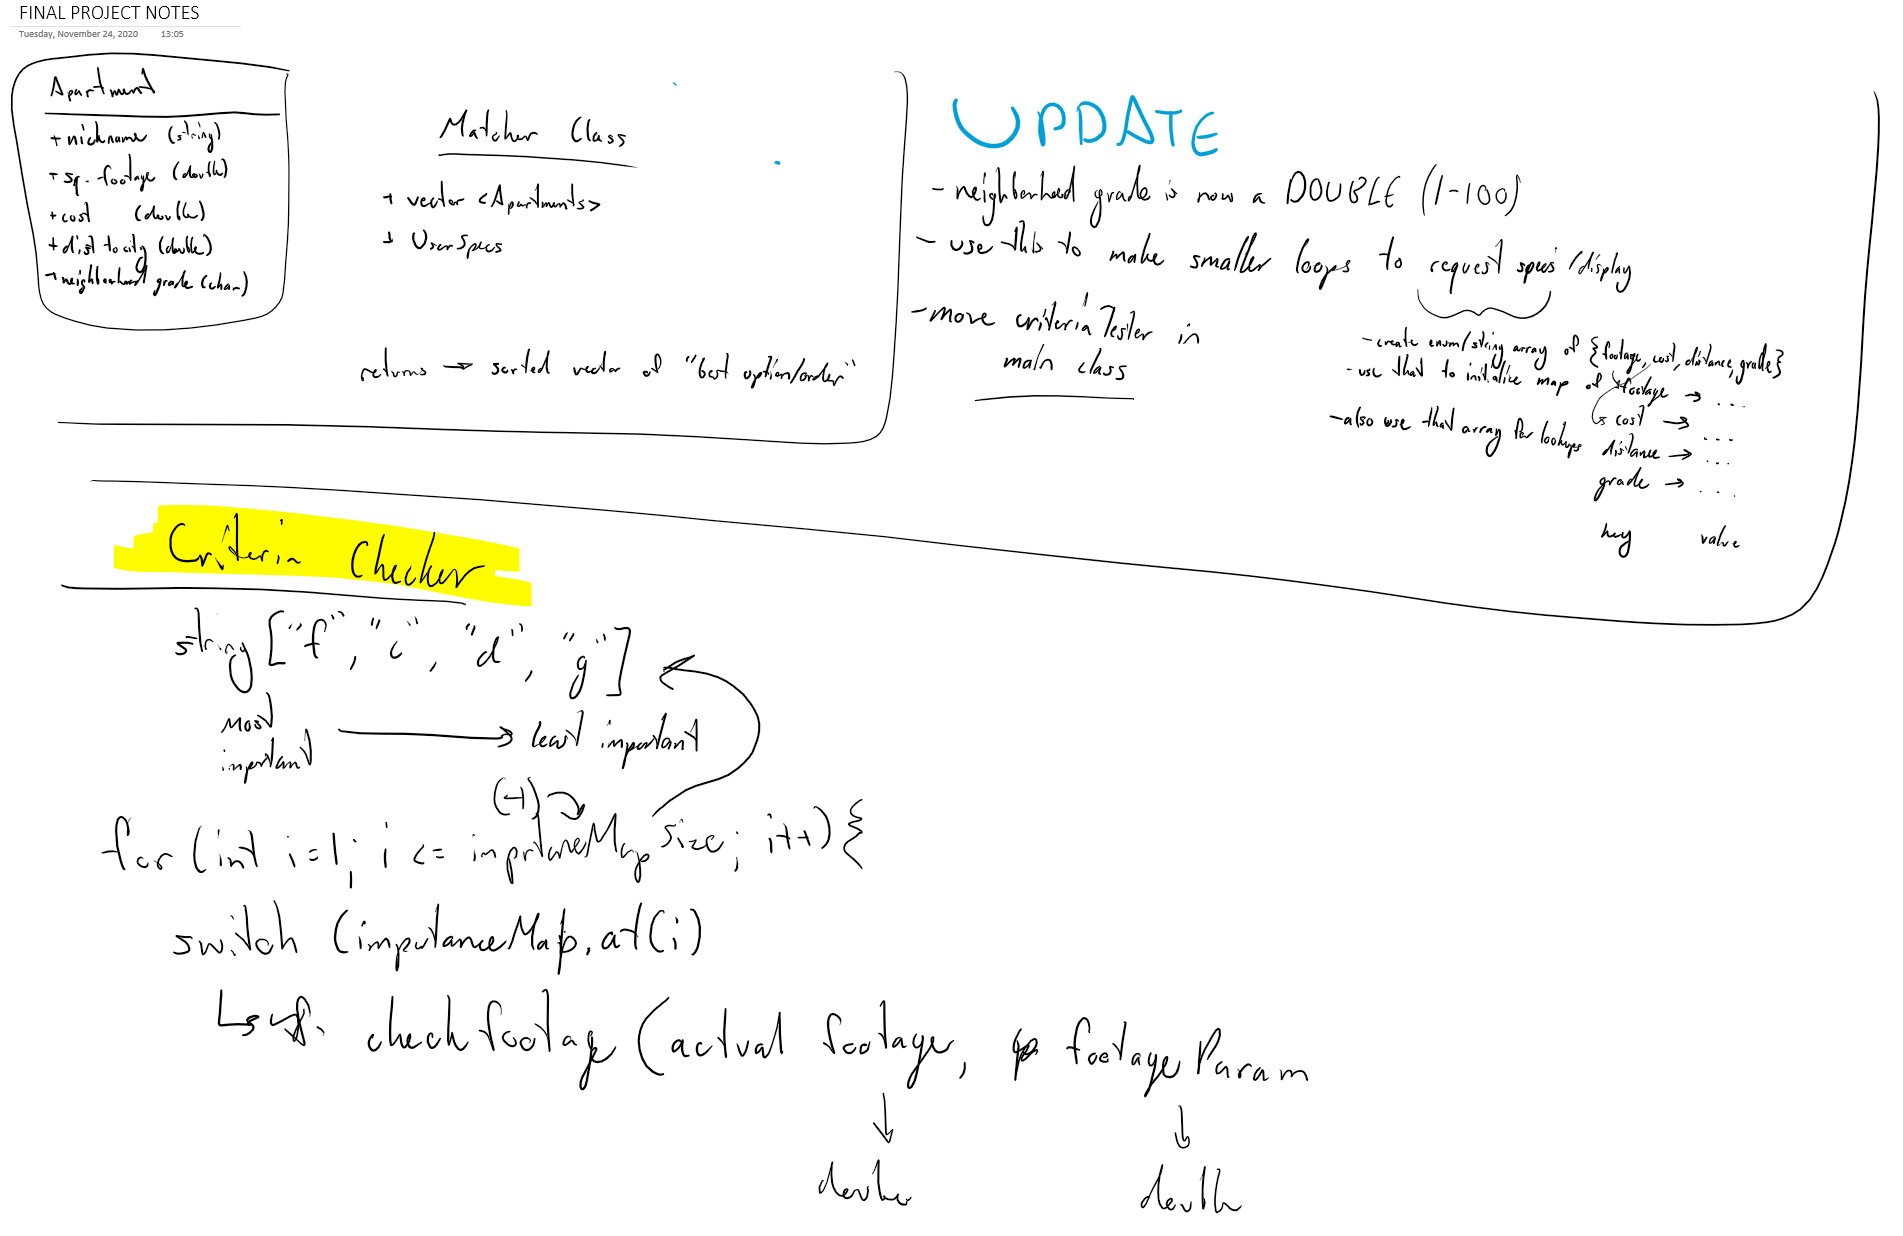 FINAL PROJECT NOTES
Tuesday, November 24, 2020 13:05
Apartment
+ nickname (string)
+ sq. footage (double)
+ cost (double)
+ dist to city (double)
+ neighborhood grade (char)
Matcher Class
+ vector <Apartments>
+ UserSpecs
returns → sorted vector of "best option/order"
UPDATE
- neighborhood grade is now a DOUBLE (1-100)
- use this to make smaller loops to request specs /display
- move criteriaTester in
main class
- create enum/string array of {footage, cost, distance, grade}
- use that to initialize map of footage → ...
cost → ...
- also use that array for lookups distance → ...
grade → ...
key value
Criteria Checker
string ["f", "c", "d", "g"]
most
important → least important
(-1)
for (int i=1; i <= importanceMap size; i++) {
switch (importanceMap.at(i)
checkfootage (actual footage, footageParam
double double